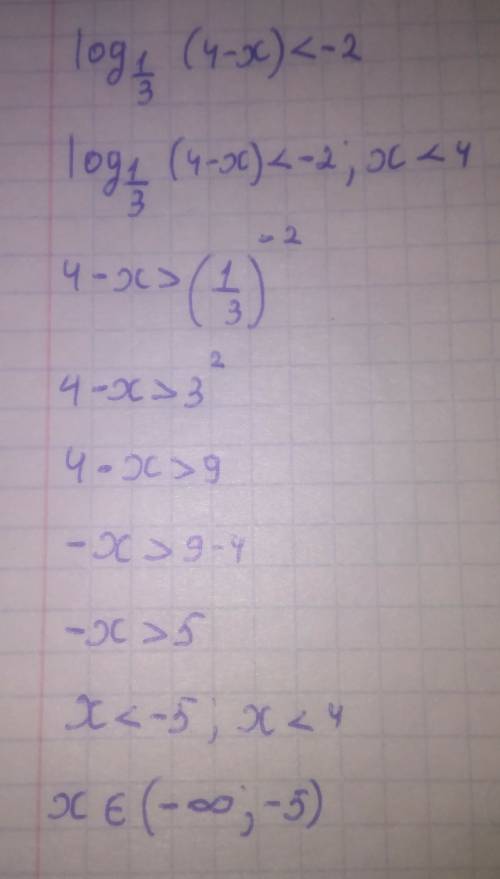 log_{1/3} (4-x) < -2
log_{1/3} (4-x) < -2 ; x < 4
4-x > (1/3)^{-2}
4-x > 3^2
4-x > 9
-x > 9-4
-x > 5
x < -5 ; x < 4
x ∈ (-∞ ; -5)